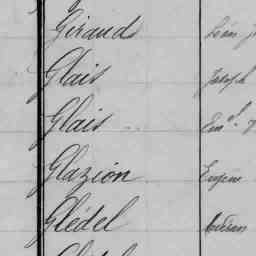 Giraud Léon
Glais Joseph
Glais Em^l.
Glazion Eugène
Glédel